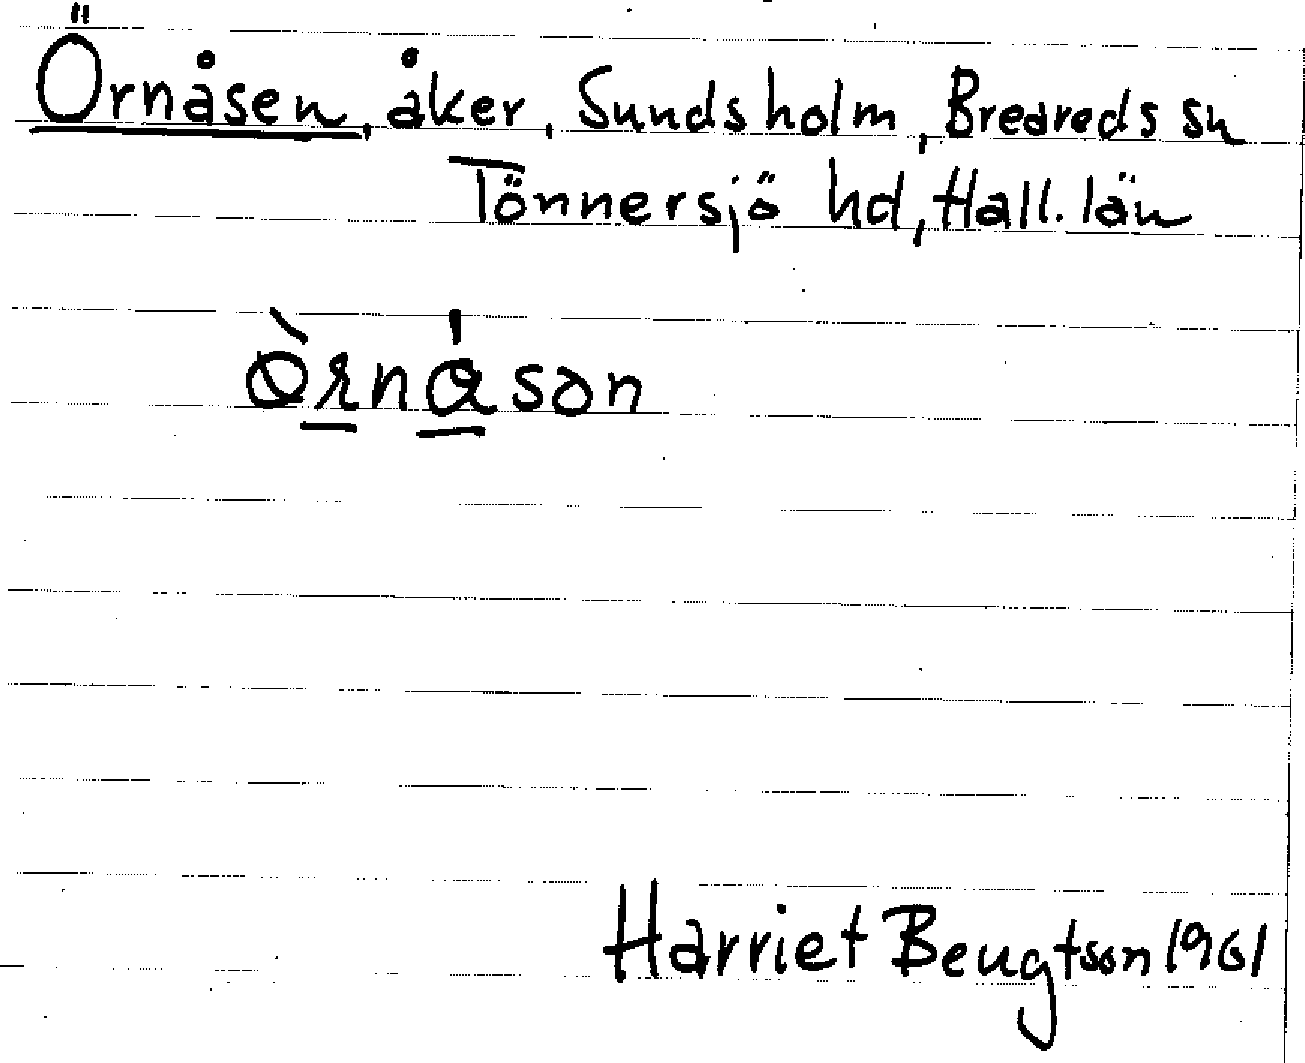 Örnåsen, åker, Sundsholm, Breareds sn
Tönnersjö hd, Hall. län
Harriet Bengtson 1961